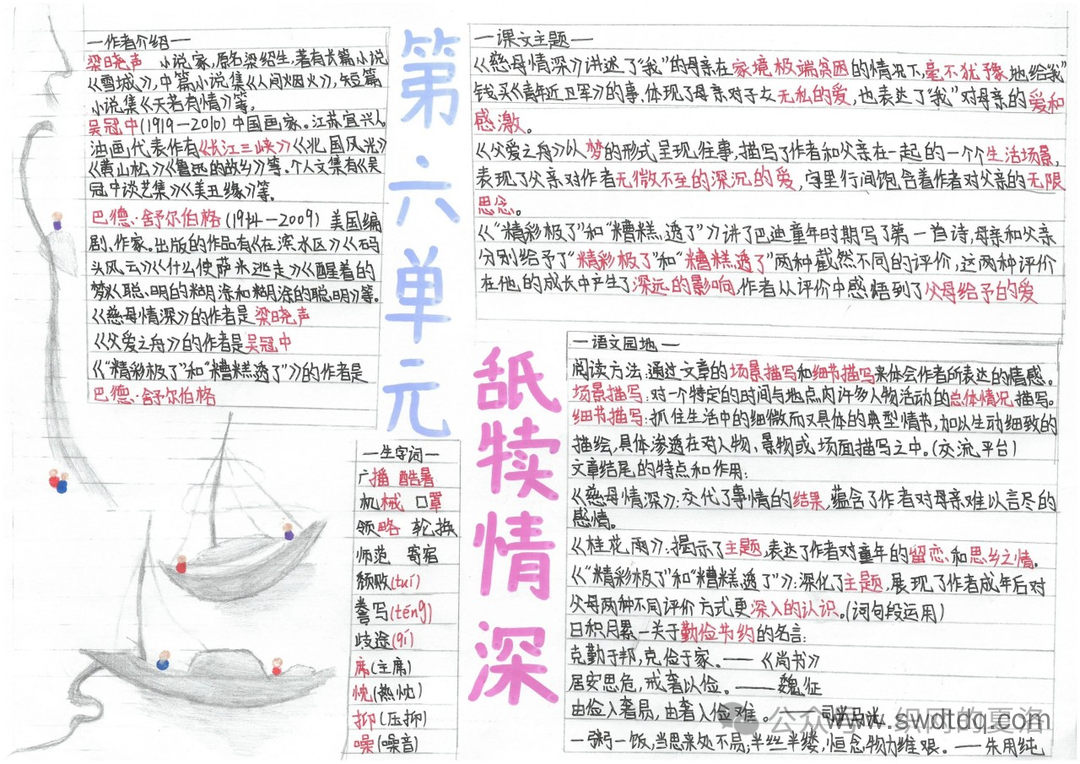 第六单元
舐犊情深
—作者介绍—
梁晓声 小说家,原名梁绍生,著有长篇小说
《雪城》,中篇小说集《人间烟火》,短篇
小说集《天若有情》等。
吴冠中(1919—2010)中国画家。江苏宜兴人。
油画代表作有《长江三峡》《北国风光》
《黄山松》《鲁迅的故乡》等。个人文集有《吴
冠中谈艺集》《美丑缘》等。
巴德·舒尔伯格(1914—2009) 美国编
剧、作家。出版的作品有《在滨水区》《码
头风云》《什么使萨米逃走》《醒着的
梦》《聪明的糊涂和糊涂的聪明》等。
《慈母情深》的作者是梁晓声
《父爱之舟》的作者是吴冠中
《“精彩极了”和“糟糕透了”》的作者是
巴德·舒尔伯格
—生字词—
广播 酷暑
机械 口罩
领略 轮换
师范 寄宿
颓败(tuí)
誊写(téng)
歧途(qí)
席(主席)
忱(热忱)
抑(压抑)
噪(噪音)
—课文主题—
《慈母情深》讲述了“我”的母亲在家境极端贫困的情况下,毫不犹豫地给“我”
钱买《青年近卫军》的事,体现了母亲对子女无私的爱,也表达了“我”对母亲的爱和
感激。
《父爱之舟》以梦的形式呈现往事,描写了作者和父亲在一起的一个个生活场景,
表现了父亲对作者无微不至的深沉的爱,字里行间饱含着作者对父亲的无限
思念。
《“精彩极了”和“糟糕透了”》讲了巴迪童年时期写了第一首诗,母亲和父亲
分别给予了“精彩极了”和“糟糕透了”两种截然不同的评价,这两种评价
在他的成长中产生了深远的影响,作者从评价中感悟到了父母给予的爱
—语文园地—
阅读方法:通过文章的场景描写和细节描写来体会作者所表达的情感。
场景描写:对一个特定的时间与地点内许多人物活动的总体情况描写。
细节描写:抓住生活中的细微而又具体的典型情节,加以生动细致的
描绘,具体渗透在对人物、景物或场面描写之中。(交流平台)
文章结尾的特点和作用:
《慈母情深》:交代了事情的结果,蕴含了作者对母亲难以言尽的
感情。
《桂花雨》:揭示了主题,表达了作者对童年的留恋和思乡之情。
《“精彩极了”和“糟糕透了”》:深化了主题,展现了作者成年后对
父母两种不同评价方式更深入的认识。(词句段运用)
日积月累—关于勤俭节约的名言:
克勤于邦,克俭于家。——《尚书》
居安思危,戒奢以俭。——魏征
由俭入奢易,由奢入俭难。——司马光
一粥一饭,当思来处不易;半丝半缕,恒念物力维艰。——朱用纯
www.swdtdq.com